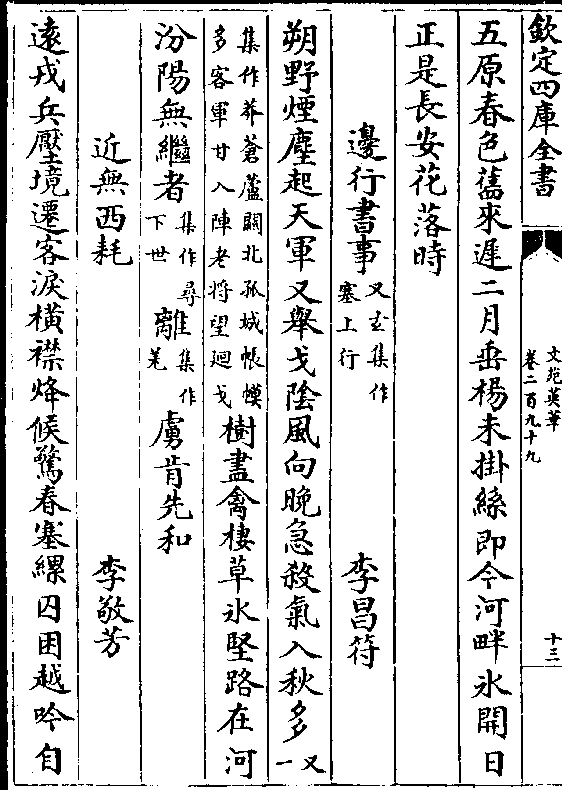 欽定四庫全書
文苑英華
卷二百九十九
十三
五原春色舊來遲二月垂楊未掛絲即今河畔氷開日
正是長安花落時
邊行書事又玄集作塞上行 李昌符
朔野煙塵起天軍又舉戈陰風向晚急殺氣入秋多又一
集作莽蒼蘆關北孤城帳幙多客軍甘入陣老将望廻戈樹盡禽棲草氷堅路在河
汾陽無繼者集作尋下世離集作羌虜肯先和
近無西耗 李敬芳
遠戎兵壓境遷客淚橫襟烽候驚春塞縲囚困越吟自